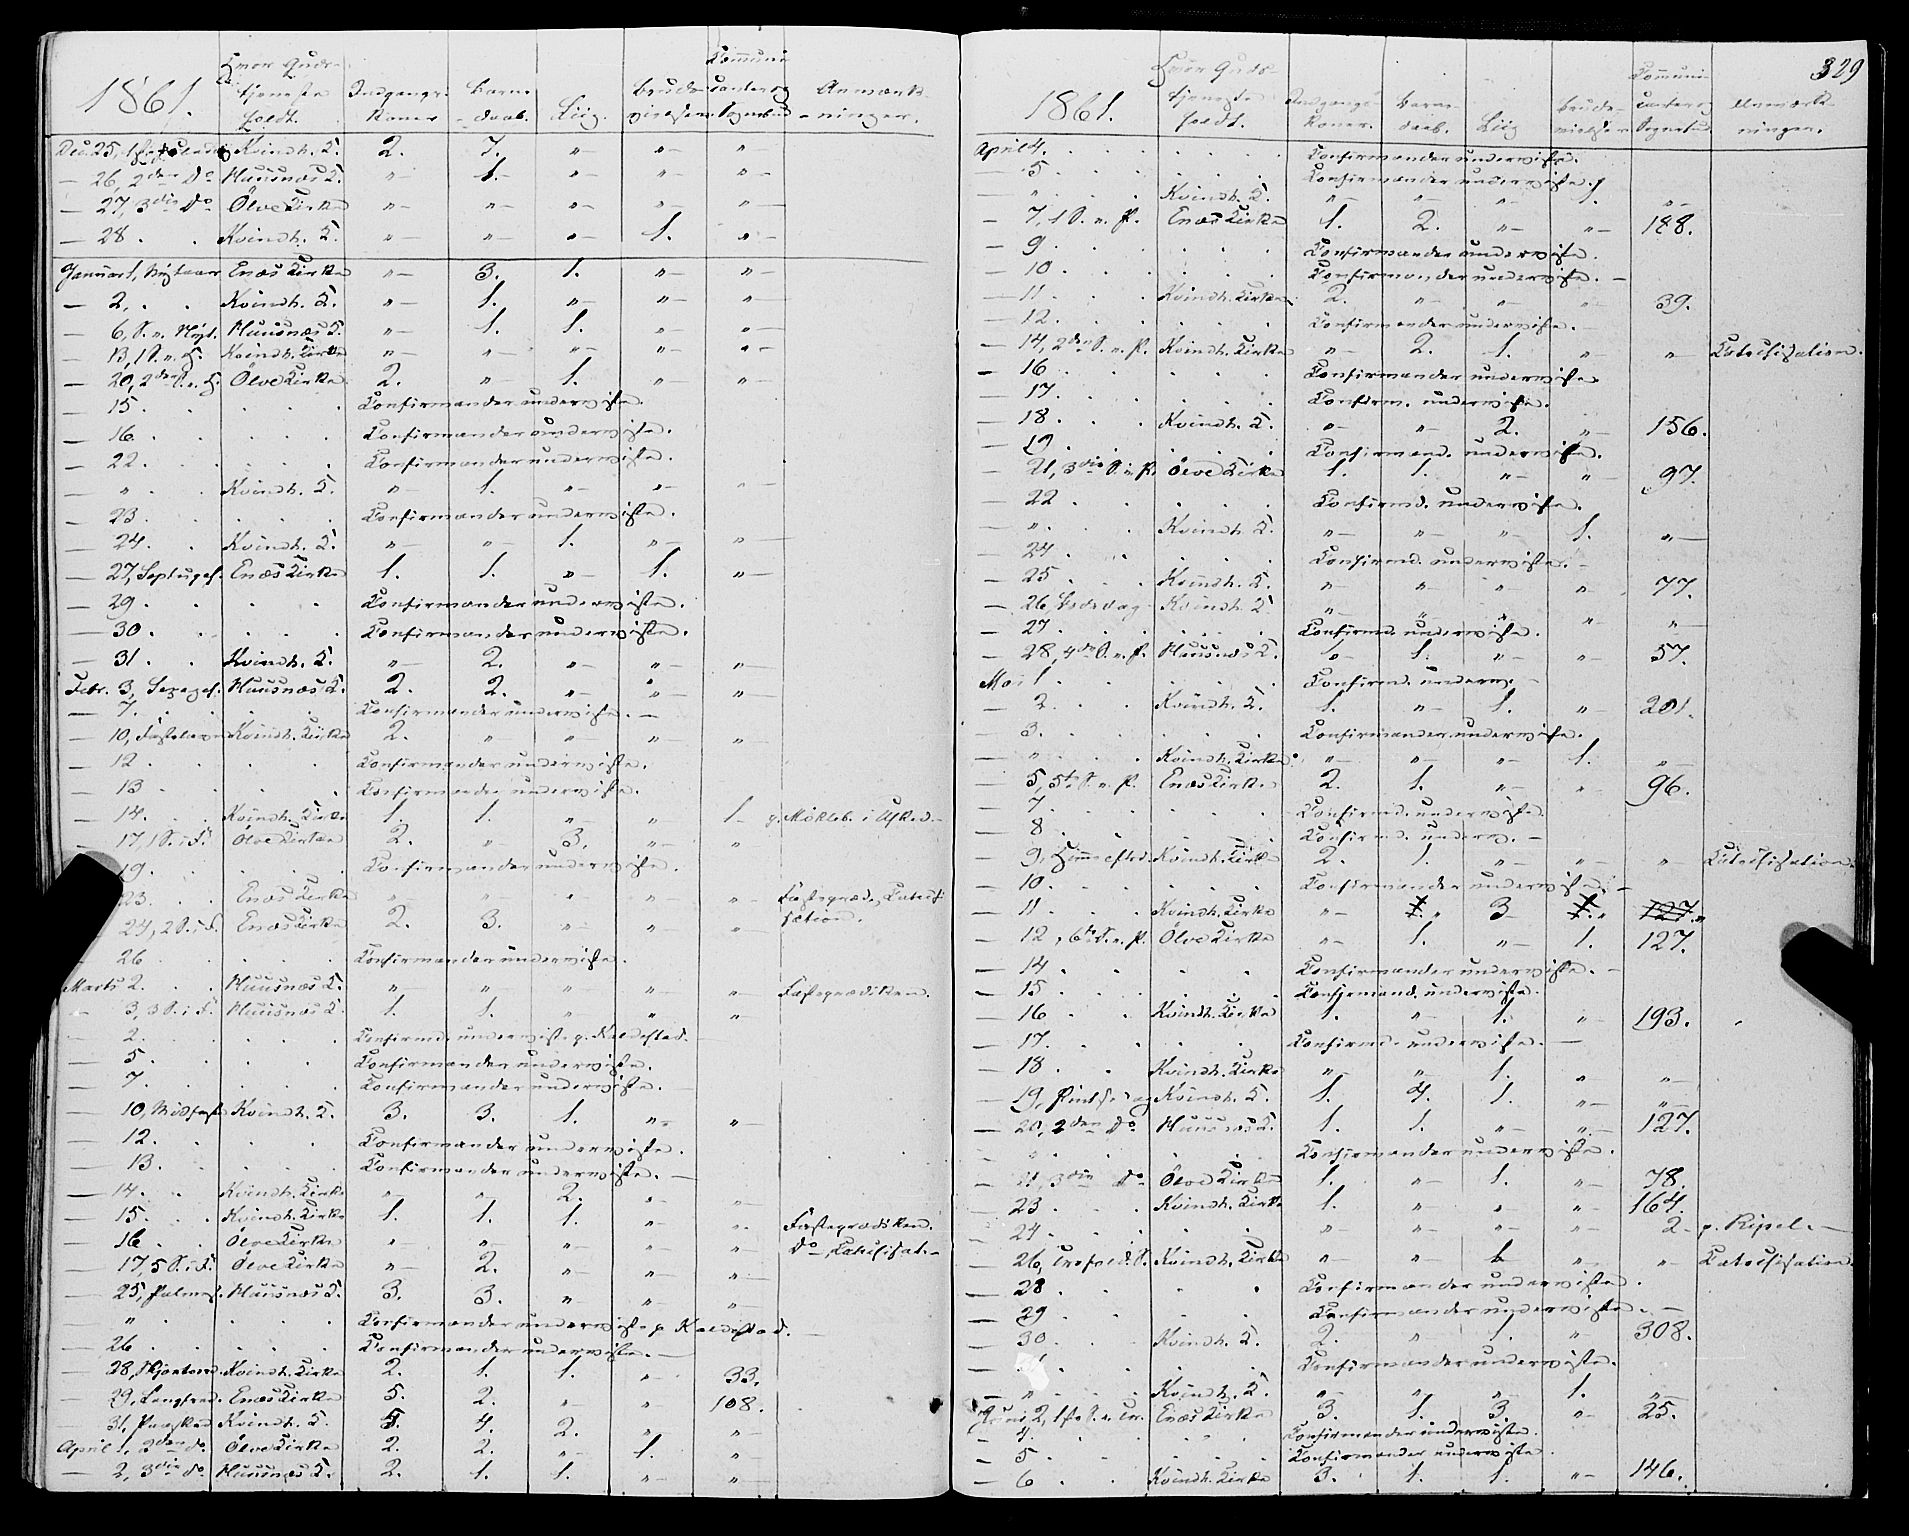 1861.
Hvor Guds-
tjeneste
holdt.
Indgangs-
koner
Barne-
daab.
Liig.
Brude-
vielser
Communi-
canter og
Sognebud
Anmærk-
ninger.
Dec. 25, Kvindh. K. 2. 7. "- "- "
- 26, 2den Do Huusnæs K. "- 1. "- "- "-
- 27, 3die Do Ölve Kirke "- "- "- "- "-
- 28. . Kvindh. K. "- "- "- 1. "-
Januar 1, Nytaar Enæs Kirke "- 3. 1. "- "-
- 2, . . Kvindh. K. "- 1. "- "- "-
- 6, S. e. Nyt. Huusnæs K. "- 1. 1. "- "-
- 13, 1 S. e. H. Kvindh. Kirke "- "- "- "- "-
- 20, 2den S. e. H. Ölve Kirke 2. "- 1. "- "-
- 15. . . . . Confirmander underviste.
- 16. . . . . Confirmander underviste.
- 22. . . . . Confirmander underviste.
- " . . Kvindh. K. "- 1. "- "- "-
- 23. . . . . Confirmander underviste.
- 24. . Kvindh. K. "- "- 1. "- "-
- 27, Septuges. Enæs Kirke 1. 1. "- 1. "-
- 29. . . . . Confirmander underviste.
- 30. . . . . Confirmander underviste.
- 31. . Kvindh. K. "- 2. "- "- "-
Febr. 3, Sexages. Huusnæs K. 2. 2. "- "- "-
- 7. . . . . Confirmander underviste. -
- 10, Fastelavn Kvindh. Kirke 2. " "- "- "
- 12. . . . . Confirmander underviste.
- 13. . . . . Confirmander underviste.
- 14. . Kvindh. Kirke 1. 1. "- " 1- p. Mökleb. i Uskedl.
- 17, 1 S. i F. Ölve Kirke 2. "- 3. "- "
19. . . . . Confirmander underviste.
23. . . Enæs Kirke "- " " "- "- Fastepræd., Catechi-
sation.
24, 2 S. i F. Enæs Kirke 2. 3. "- "- "-
26. . . . . Confirmander underviste.
Marts 2. . . Huusnæs K. "- "- "- "- "- Fasteprædiken.
- 3, 3 S. i F. Huusnæs K. 1. 1. "- "- "-
2. . . . . Confirmd. underviste p. Kaldestad.
- 5. . . . . Confirmander underviste.
- 7. . . . . Confirmander underviste. -
- 10, Midfast Kvindh. K. 3. 3. 1. "- "-
- 12. . . . . Confirmander underviste.
- 13. . . . . Confirmander underviste. -
- 14. . . Kvindh. Kirke "- "- 2. "- "-
- 15. . . Kvindh. Kirke 1. 1. 1. "- "- Fasteprædiken.
- 16. . . Ölve Kirke "- "- "- "- "- Do, Catechisat. -
- 17, 5 S. i F. Ölve Kirke "- 2. "- "- "-
- 25, Palmes. Huusnæs K. 3. 3. "- "- "-
- " . . . . Confirmander underviste p. Kaldestad. -
- 26. . . . . Confirmander underviste. -
- 28, Skjertorsd. Kvindh. Kirke 2. 1. 1. "- 33.
- 29, Langfred. Enæs Kirke 5. 2. "- " 108.
- 31, Paasked. Kvindh. K. 5. 4. 2. "- "-
April 1, 2den do. Ölve Kirke 2. 2. "- 1. "-
- 2, 3die do Huusnæs K. 2. 1. 1. "- "-
329
1861.
Hvor Guds-
tjeneste
holdt.
Indgangs-
koner.
Barne-
daab.
Liig
Brude-
vielser
Communi-
canter og
Sognebud.
Anmærk-
ninger.
April 4. . . . . Confirmander underviste.
- 5. . . . . Confirmander underviste.
- " . . . Kvindh. K. "- "- "- 1. "-
- 7, 1 S. e. P. Enæs Kirke 1. 2. "- "- 188.
- 9. . . . . Confirmander underviste.
- 10. . . . . Confirmander underviste. -
- 11. . . Kvindh. Kirke 2. "- "- "- 39.
- 12. . . . . Confirmander underviste. -
- 14, 2den S. e. P. Kvindh. Kirke "- 2. 1. "- " Catechisation.
- 16. . . . . Confirmander underviste.
- 17. . . . . Confirm. underviste.
- 18. . . Kvindh. K. "- "- 2. "- 156.
- 19. . . . . Confirmand. underviste.
- 21, 3die S. e. P. Ölve Kirke 1. 1. "- "- 97.
- 22. . . . . Confirmd. underviste.
- ". . . Kvindh. K. "- "- "- 1. "-
- 24. . . . . Confirmd. underviste. -
- 25. . . Kvindh. K. "- "- "- "- 77.
- 26, Bededag Kvindh. K "- "- "- "- "-
- 27. . . . . Confirmd. underviste.
- 28, 4de S. e. P. Huusnæs K. "- 1. "- "- 57.
Mai 1. . . . . Confirmd. underv. -
- 2. . . Kvindh. K. 1. "- 1. "- 201.
- 3. . . . . Confirmander underviste.
- " . . Kvindh. Kirke "- "- "- 1. "-
- 5, 5te S. e. P. Enæs Kirke 2. 1. "- "- 96.
- 7. . . . . Confirmd. underviste.
- 8. . . . . Confirmd. underv. -
- 9, Himmelfartsd. Kvindh. Kirke 2. 1. "- "- " Catechisation.
- 10. . . . . Confirmander underviste. -
- 11. . . Kvindh. Kirke "- 1. " 3 1. " 127. "
- 12, 6te S. e. P. Ölve Kirke "- 1. "- 1. 127.
- 14. . . . Confirmander underviste. -
- 15. . . . Confirmand. underviste.
- 16. . . Kvindh. Kirke 1. "- 1. "- 193.
- 17. . . . . Confirmd. underviste. -
- 18. . . Kvindh. Kirke "- "- 1. "- "-
- 19, Pintsedag Kvindh. K. 1. 4. 1. "- "-
- 20, 2den Do Huusnæs K. 1. 1. "- "- 127.
- " . . . Confirmander underviste.
- 21, 3die do Ölve Kirke 1. "- 1. "- 78.
- 23. . . Kvindh. Kirke 1. "- "- "- 164.
- 24. . . . . "- "- "- "- 2- p. Ripel. -
- 26, Trefold. S. Kvindh. Kirke "- "- 1. "- "- Catechisation.
- 28. . . . Confirmander underviste.
- 29. . . . Confirmander underviste. -
- 30. . . Kvindh. K. 2. " 1. "- 308.
. . . . Confirmander underviste.
- " . . Kvindh. K. "- "- "- 1. "-
Juni 2, 1ste S. e. Tr. Enæs Kirke 3. 1. 3. "- 25.
- 4. . . . Confirmander underviste.
- 5. . . . Confirmander underviste.
- 6. . . Kvindh. Kirke 3. 1. 1. "- 146.